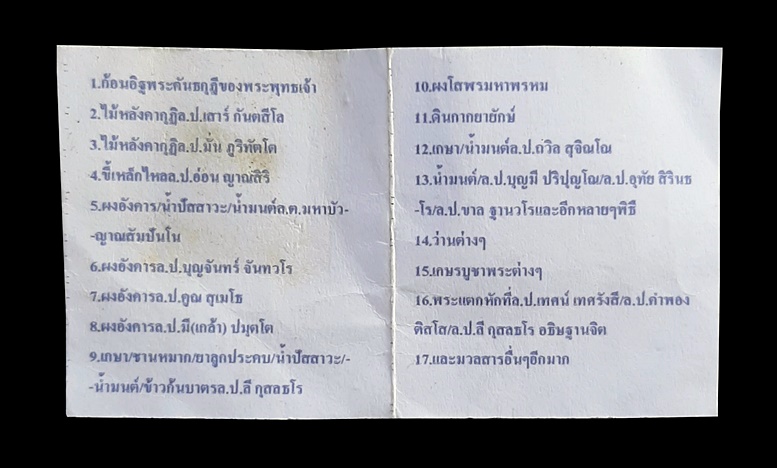 1.ก้อนอิฐพระคันธกุฎีของพระพุทธเจ้า
2.ไม้หลังคากุฏิล.ป.เสาร์ กันตสีโล
3.ไม้หลังคากุฏิล.ป.มั่น ภูริทัตโต
4.ขี้เหล็กไหลล.ป.อ่อน ญาณสิริ
5.ผงอังคาร/น้ำปัสสาวะ/น้ำมนต์ล.ต.มหาบัว-
-ญาณสัมปันโน
6.ผงอังคารล.ป.บุญจันทร์ จันทวโร
7.ผงอังคารล.ป.คูณ สุเมโธ
8.ผงอังคารล.ป.มี(เกล้า) ปมุตโต
9.เกษา/ชานหมาก/ยาลูกประคบ/น้ำปัสสาวะ/-
-น้ำมนต์/ข้าวก้นบาตรล.ป.ลี กุสลธโร
10.ผงโสฬรมหาพรหม
11.ดินกากยายักษ์
12.เกษา/น้ำมนต์ล.ป.ถวิล สุจิณโณ
13.น้ำมนต์/ล.ป.บุญมี ปริปุญโณ/ล.ป.อุทัย สิรินธ
-โร/ล.ป.ขาล ฐานวโรและอีกหลายๆพิธี
14.ว่านต่างๆ
15.เกษรบูชาพระต่างๆ
16.พระแตกหักที่ล.ป.เทศน์ เทศรังสี/ล.ป.คำพอง
ติสโส/ล.ป.ลี กุสลธโร อธิษฐานจิต
17.และมวลสารอื่นๆอีกมาก